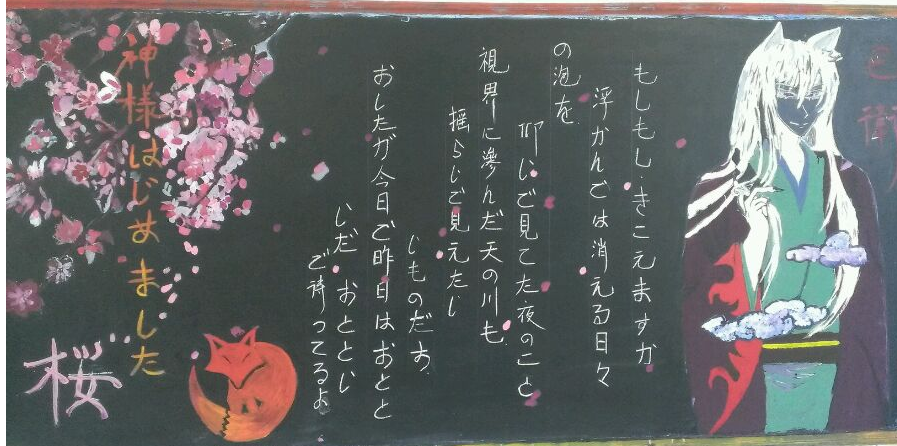 もしもし、きこえますか
浮かんでは消える日々
の泡を
仰じで見てた夜のこと
視界に滲んだ天の川も
揺らじで見えたし
じものだお
おしたが今日ご昨日はおとと
じだ おととじ
ご待ってるよ
神様はじめました
桜